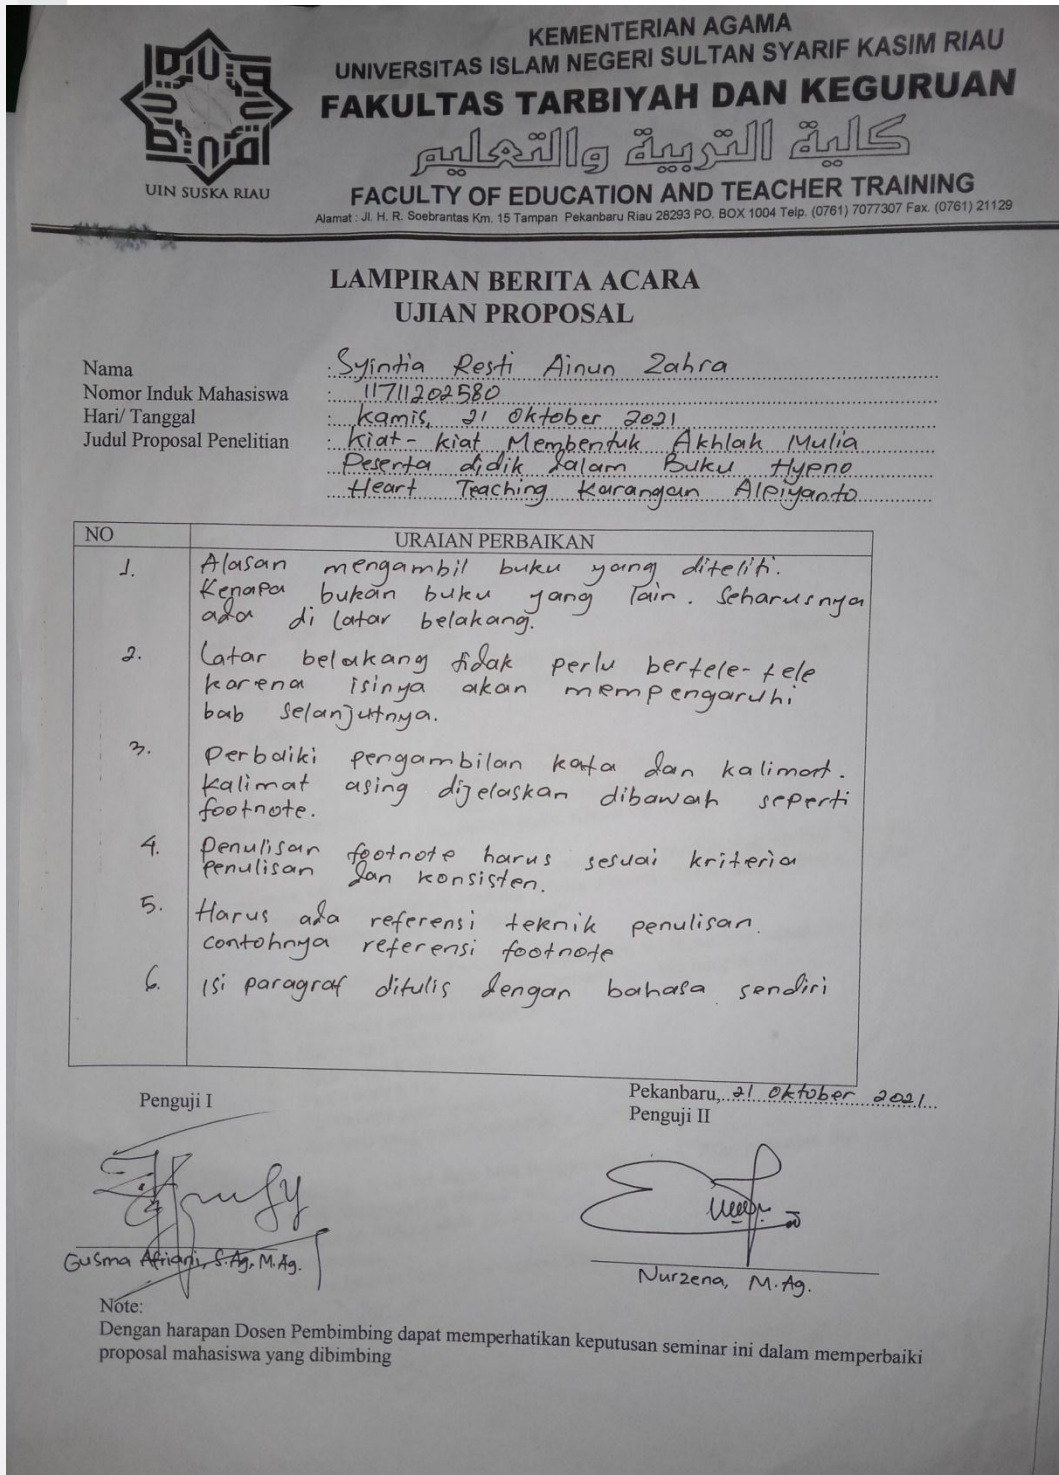 KEMENTERIAN AGAMA
UNIVERSITAS ISLAM NEGERI SULTAN SYARIF KASIM RIAU
FAKULTAS TARBIYAH DAN KEGURUAN
كلية التربية والتعليم
FACULTY OF EDUCATION AND TEACHER TRAINING
Alamat : Jl. H. R. Soebrantas Km. 15 Tampan Pekanbaru Riau 28293 PO. BOX 1004 Telp. (0761) 7077307 Fax. (0761) 21129
UIN SUSKA RIAU
LAMPIRAN BERITA ACARA
UJIAN PROPOSAL
Nama : Syintia Resti Ainun Zahra
Nomor Induk Mahasiswa : 11711202580
Hari/ Tanggal : Kamis, 21 Oktober 2021
Judul Proposal Penelitian : Kiat-kiat Membentuk Akhlak Mulia
Peserta didik dalam Buku Hypno
Heart Teaching Karangan Alpiyanto
NO URAIAN PERBAIKAN
1. Alasan mengambil buku yang diteliti.
Kenapa bukan buku yang lain. Seharusnya
ada di latar belakang.
2. Latar belakang tidak perlu bertele-tele
karena isinya akan mempengaruhi
bab selanjutnya.
3. Perbaiki pengambilan kata dan kalimat.
Kalimat asing dijelaskan dibawah seperti
footnote.
4. Penulisan footnote harus sesuai kriteria
penulisan dan konsisten.
5. Harus ada referensi teknik penulisan.
contohnya referensi footnote
6. Isi paragraf ditulis dengan bahasa sendiri
Pekanbaru, 21 Oktober 2021
Penguji I Penguji II
Gusma Afriani, S.Ag, M.Ag. Nurzena, M.Ag.
Note:
Dengan harapan Dosen Pembimbing dapat memperhatikan keputusan seminar ini dalam memperbaiki
proposal mahasiswa yang dibimbing